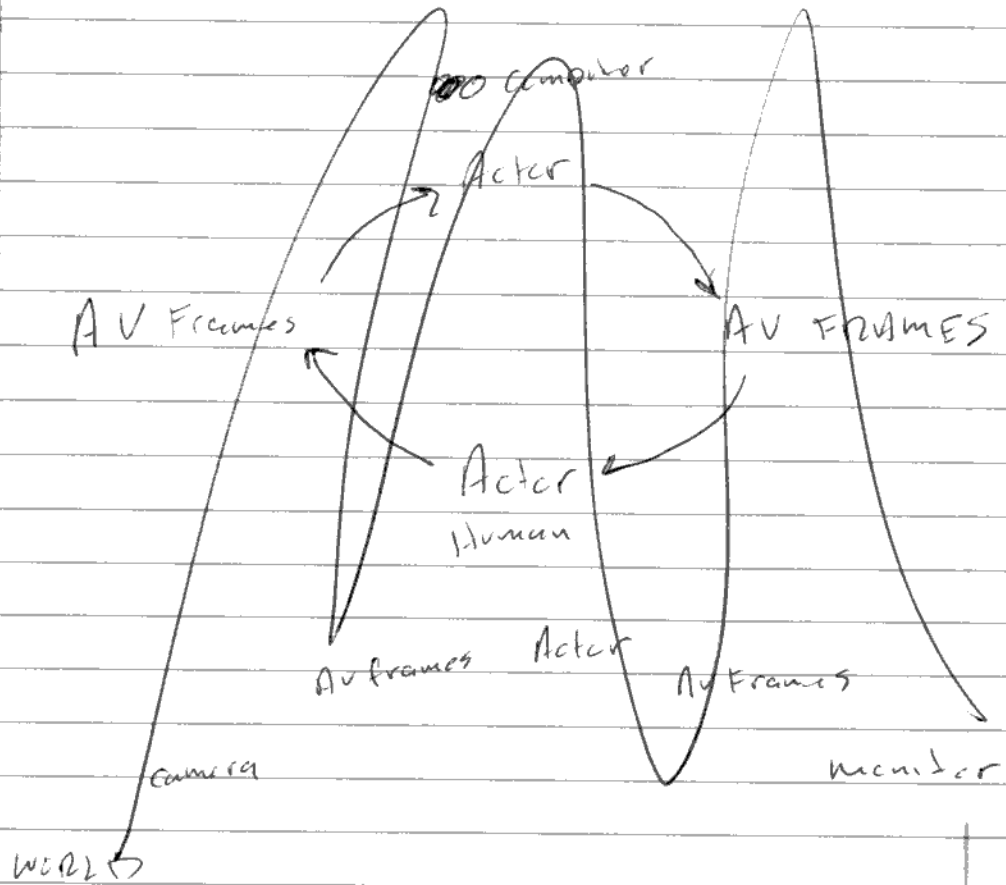 computer
Actor
AV Frames
AV FRAMES
Actor
Human
Actor
AV frames
AV Frames
camera
monitor
WORLD